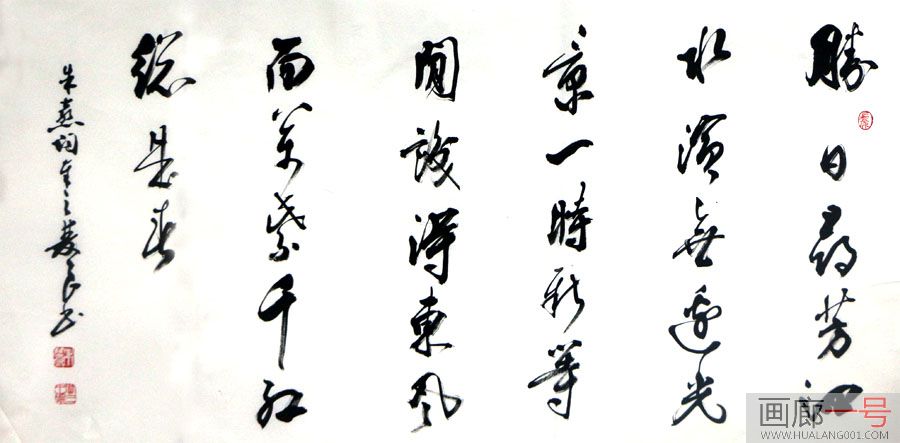 勝日尋芳泗
水濱無邊光
景一時新等
閒識得東風
面萬紫千紅
總是春
朱熹詞 良書
画廊一号
WWW.HUALANG001.COM